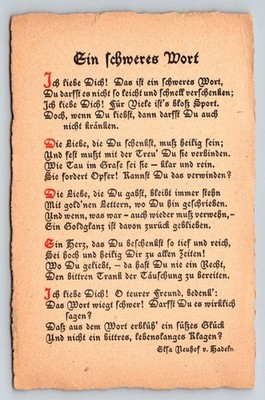 Ein schweres Wort
Ich liebe Dich! Das ist ein schweres Wort,
Du darfst es nicht so leicht und schnell verschenken;
Ich liebe Dich! Für Viele ist's bloß Sport.
Doch, wenn Du liebst, dann darfst Du auch
nicht kränken.
Die Liebe, die Du schenkst, muß heilig sein;
Und fest mußt mit der Treu' Du sie verbinden.
Wie Tau im Grase sei sie – klar und rein.
Sie fordert Opfer! Kannst Du das verwinden?
Die Liebe, die Du gabst, bleibt immer stehn
Mit gold'nen Lettern, wo Du hin geschrieben.
Und wenn, was war – auch wieder muß verwehn,–
Ein Goldglanz ist davon zurück geblieben.
Ein Herz, das Du beschenkst so tief und reich,
Sei hoch und heilig Dir zu allen Zeiten!
Wo Du geliebt, – da hast Du nie ein Recht,
Den bittren Trank der Täuschung zu bereiten.
Ich liebe Dich! O teurer Freund, bedenk':
Das Wort wiegt schwer! Darfst Du es wirklich
sagen?
Daß aus dem Wort erblüh' ein süßes Glück
Und nicht ein bittres, lebenslanges Klagen?
Elsa Neuhof v. Hadeln